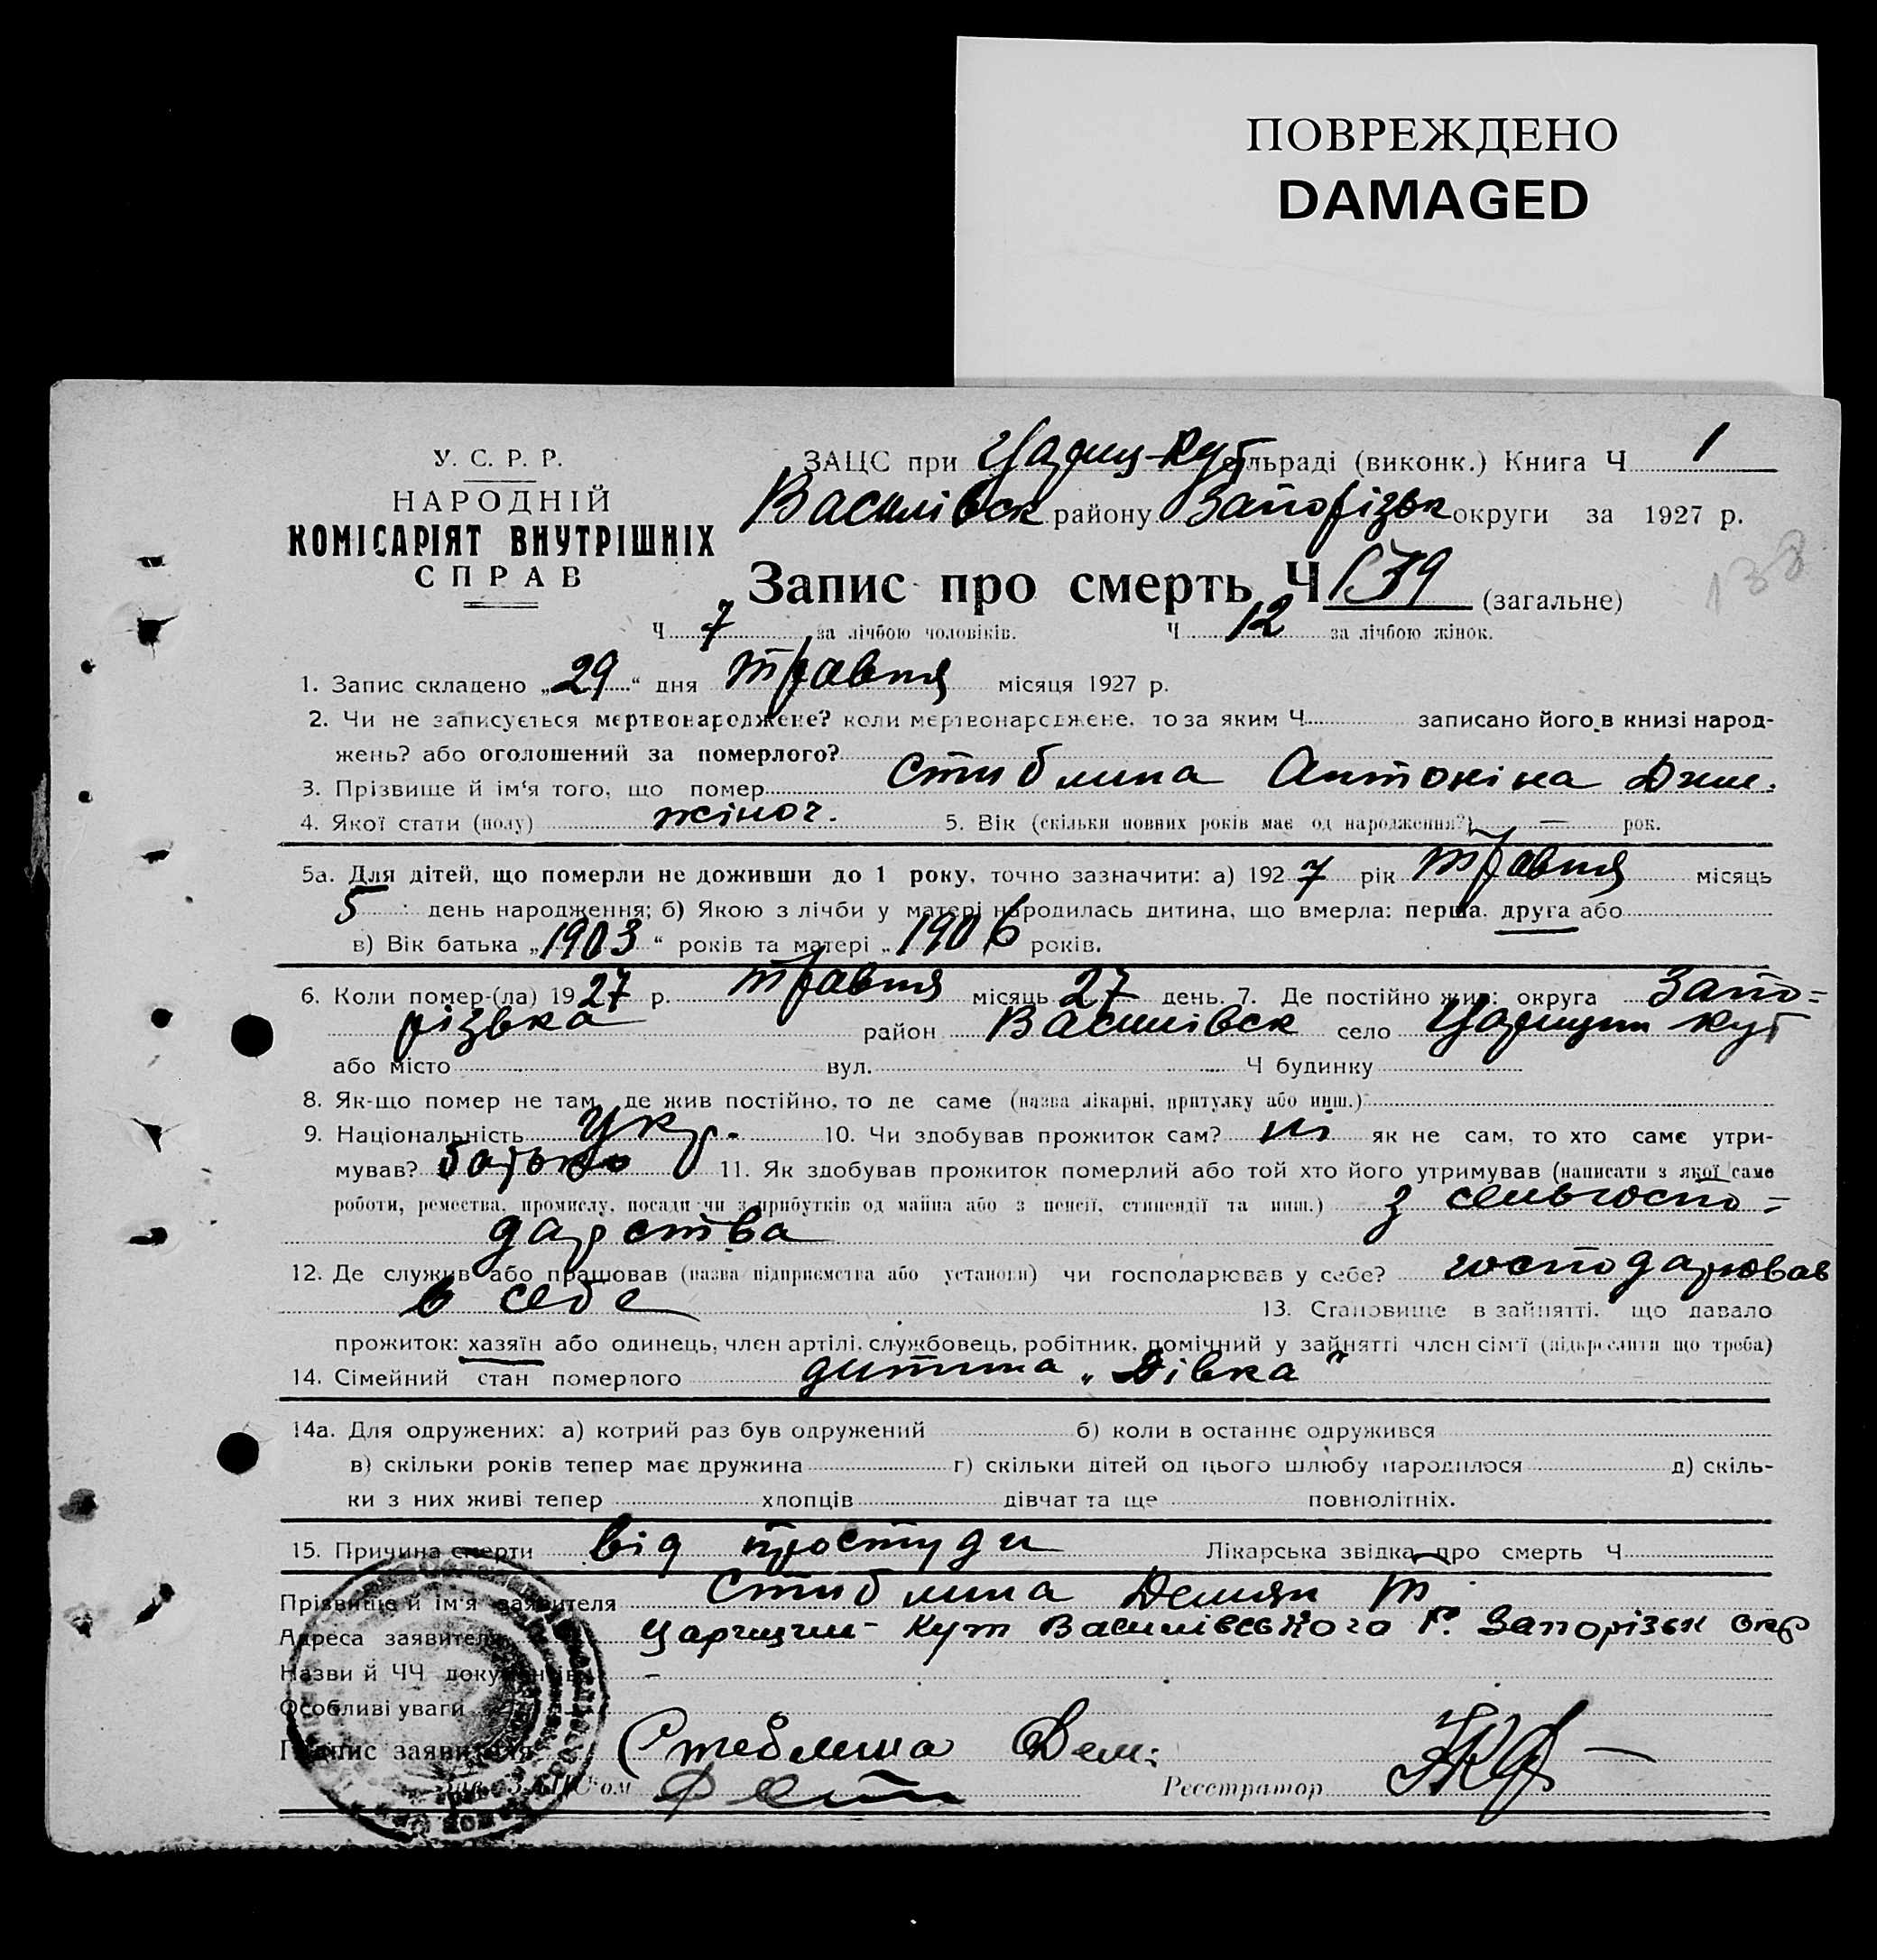 ПОВРЕЖДЕНО
DAMAGED
У. С. Р. Р.
НАРОДНІЙ
КОМІСАРІЯТ ВНУТРІШНІХ
СПРАВ
ЗАЦС при Цариц-Кут сільраді (виконк.) Книга Ч 1
Василівськ району Запорізьк округи за 1927 р.
138
Запис про смерть Ч (загальне)
Ч 7 за лічбою чоловіків. Ч 12 за лічбою жінок.
1. Запис складено „29“ дня травня місяця 1927 р.
2. Чи не записується мертвонароджене? коли мертвонароджене, то за яким Ч. записано його в книзі народ-
жень? або оголошений за померлого?
3. Прізвище й ім'я того, що помер Стиблина Антоніна Дим.
4. Якої стати (полу) жіноч. 5. Вік (скільки повних років має од народження?) — рок.
5а. Для дітей, що померли не доживши до 1 року, точно зазначити: а) 1927 рік травня місяць
5 день народження; б) Якою з лічби у матері народилась дитина, що вмерла: перша, друга або
в) Вік батька „1903“ років та матері „1906 років.
6. Коли помер-(ла) 1927 р. травня місяць 27 день. 7. Де постійно жив: округа Запо=
різька район Василівск село Царицин кут
або місто вул. Ч будинку
8. Як-що помер не там, де жив постійно, то де саме (назва лікарні, притулку або инш.)
9. Національність Укр. 10. Чи здобував прожиток сам? ні як не сам, то хто саме утри-
мував? батько 11. Як здобував прожиток померлий або той хто його утримував (написати з якої саме
роботи, ремества, промислу, посади чи з прибутків од майна або з пенсії, стипендії та инш.) з сельгоспо=
дарства
12. Де служив або працював (назва підприємства або установи) чи господарював у себе? господарював
в себе 13. Становище в зайнятті, що давало
прожиток: хазяїн або одинець, член артілі, службовець, робітник, помічний у зайнятті член сім'ї (підкреслити що треба)
14. Сімейний стан померлого дитина „Дівка"
14а. Для одружених: а) котрий раз був одружений б) коли в останнє одружився
в) скільки років тепер має дружина г) скільки дітей од цього шлюбу народилося д) скіль-
ки з них живі тепер хлопців дівчат та ще повнолітніх.
15. Причина смерти від простуди Лікарська звідка про смерть Ч
Прізвище й ім'я заявителя Стиблина Демян Т
Адреса заявителя Царицин-Кут Василівського Р. Запорізьк окр
Назви й ЧЧ документів –
Особливі уваги
Підпис заявителя Стеблина Дем:
Зав. ЗАЦС'ом Реєстратор